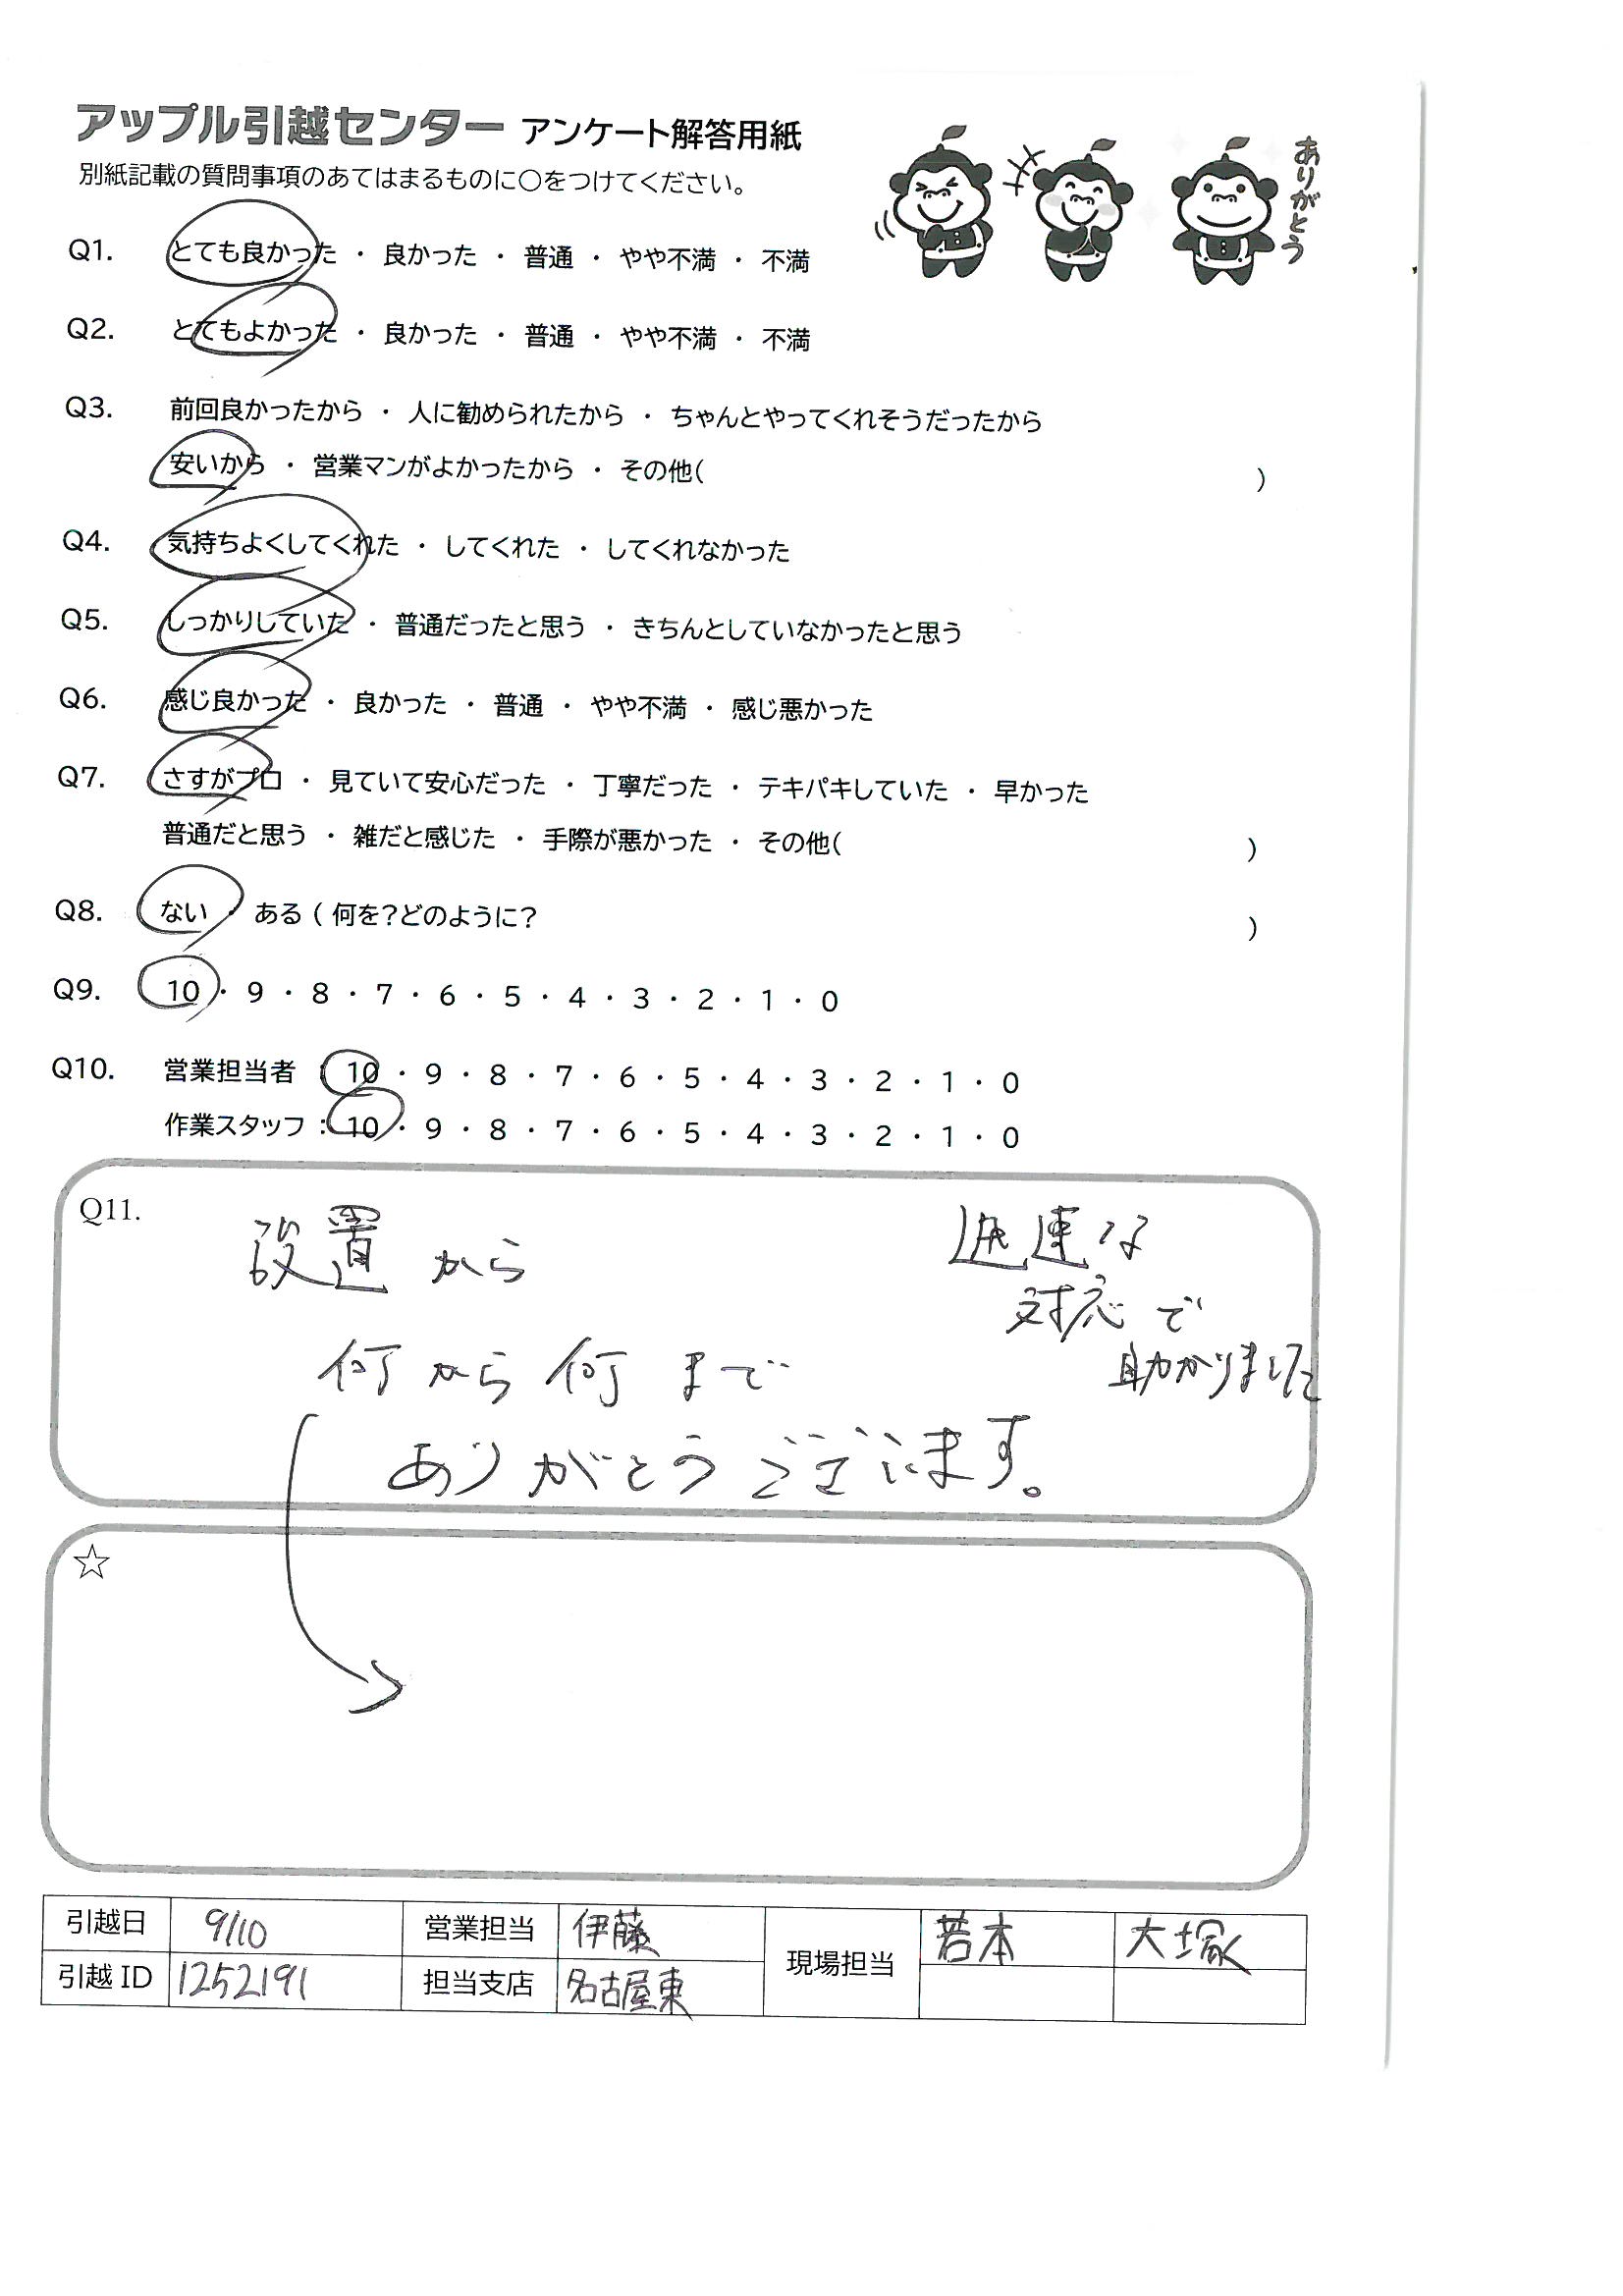 アップル引越センター アンケート解答用紙
ありがとう
別紙記載の質問事項のあてはまるものに○をつけてください。
Q1. とても良かった ・ 良かった ・ 普通 ・ やや不満 ・ 不満
Q2. とてもよかった ・ 良かった ・ 普通 ・ やや不満 ・ 不満
Q3. 前回良かったから ・ 人に勧められたから ・ ちゃんとやってくれそうだったから
安いから ・ 営業マンがよかったから ・ その他( )
Q4. 気持ちよくしてくれた ・ してくれた ・ してくれなかった
Q5. しっかりしていた ・ 普通だったと思う ・ きちんとしていなかったと思う
Q6. 感じ良かった ・ 良かった ・ 普通 ・ やや不満 ・ 感じ悪かった
Q7. さすがプロ ・ 見ていて安心だった ・ 丁寧だった ・ テキパキしていた ・ 早かった
普通だと思う ・ 雑だと感じた ・ 手際が悪かった ・ その他( )
Q8. ない ・ ある ( 何を?どのように? )
Q9. 10 ・ 9 ・ 8 ・ 7 ・ 6 ・ 5 ・ 4 ・ 3 ・ 2 ・ 1 ・ 0
Q10. 営業担当者 : 10 ・ 9 ・ 8 ・ 7 ・ 6 ・ 5 ・ 4 ・ 3 ・ 2 ・ 1 ・ 0
作業スタッフ : 10 ・ 9 ・ 8 ・ 7 ・ 6 ・ 5 ・ 4 ・ 3 ・ 2 ・ 1 ・ 0
Q11.
設置から
何から何まで
ありがとうございます。
な
対応で
助かりました
☆
引越日 9/10 営業担当 伊藤 現場担当 若本 大塚
引越 ID 1252191 担当支店 名古屋東